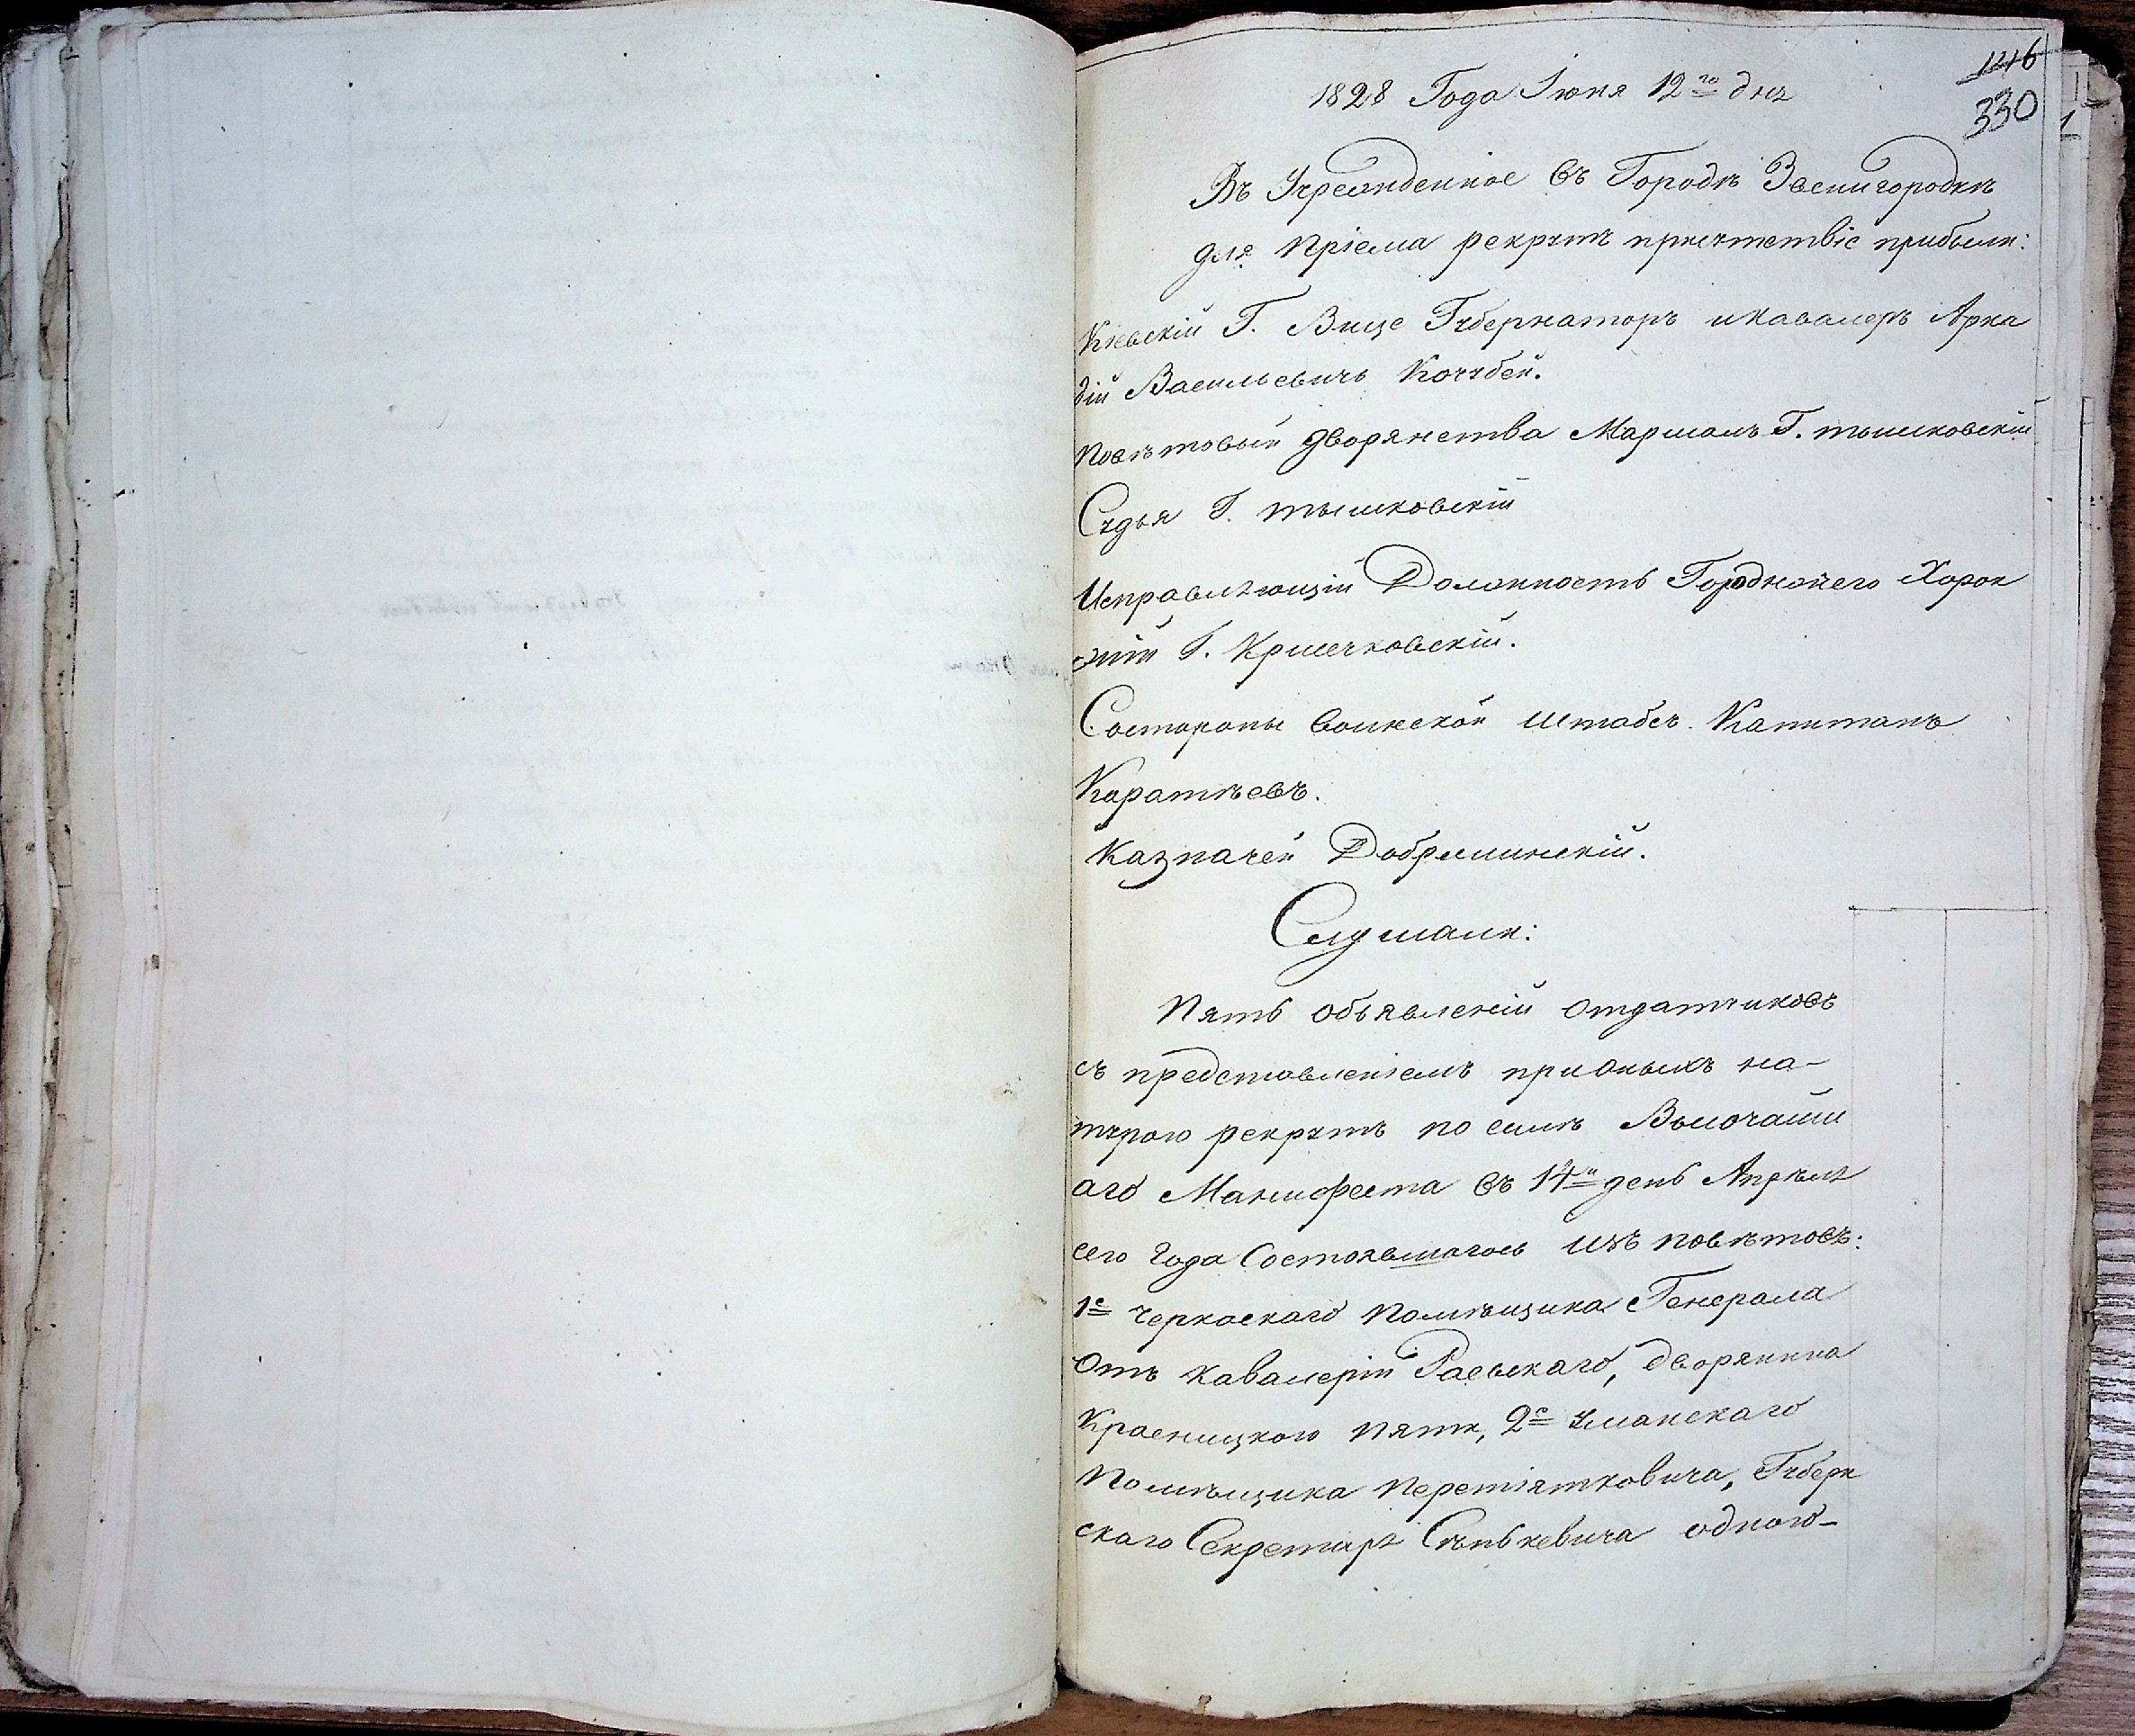 146
330
1828 Года Іюня 12го дня
Въ Учрежденное въ Городѣ Звенигородкѣ
для пріема рекрутъ присутствіе прибыли:
Кіевскій Г. Вице Губернаторъ и кавалеръ Арка
дій Васильевичъ Кочубей.
Повѣтовый дворянства Маршалъ Г. тышковскій
Судья Г. тышковскій
Исправляющій Должность Городничего Хорон
жій Г.
Состороны воинской штабсъ Капитанъ
Каратѣевъ.
Казначей
Слушали:
Пять объявленій отдатчиковъ
съ представленіемъ при оныхъ на-
туρою рекрутъ по силѣ Высочайш
аго Манифеста въ 14й день Апрѣля
сего года Состоявшагось изъ повѣтовъ:
1е Черкаскаго помѣщика Генерала
Отъ кавалеріи Раевскаго, дворянина
Красницкого пяти, 2е Уманскаго
Помѣщика Перетятковича, Губерн
скаго Секретаря одного-